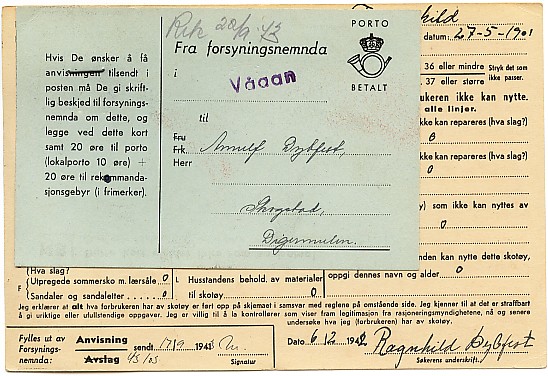 Rek 20/9 43
PORTO
BETALT
Fra forsyningsnemnda
i
Vågan
til
Fru
Frk.
Herr
Arnulf Dybfest,
Digermulen.
Hvis De ønsker å få
anvisningen tilsendt i
posten må De gi skrift-
lig beskjed til forsynings-
nemnda om dette, og
legge ved dette kort
samt 20 øre til porto
(lokalporto 10 øre) +
20 øre til rekommanda-
sjonsgebyr (i frimerker).
datum: 27-5-1901
36 eller mindre
37 eller større
Stryk det som
ikke passer.
ukeren ikke kan nytte.
alle linjer.
kke kan repareres (hva slag?)
0
kke kan repareres (hva slag?)
0
kke kan repareres (hva slag?)
0
) som ikke kan nyttes av
0
nden kan nytte dette skotøy,
oppgi dennes navn og alder 0
Hva slag?
F
Utpregede sommersko m. lærsåle 0
Sandaler og sandaletter 0
I. Husstandens behold. av materialer
til skotøy 0
Jeg erklærer at alt forbrukeren har av skotøy er ført opp på skjemaet i samsvar med reglene på omstående side. Jeg kjenner til at det er straffbart
å gi uriktige eller ufullstendige oppgaver. Jeg er villig til å la kontrollører som viser fram legitimasjon fra rasjoneringsmyndighetene, når og senere
undersøke hva jeg (forbrukeren) har av skotøy.
Fylles ut av
Forsynings-
nemnda:
Anvisning
Avslag
sendt 17/9 1943
Signatur
Dato 6/12 1942
Ragnhild Dybfest
Søkerens underskrift.